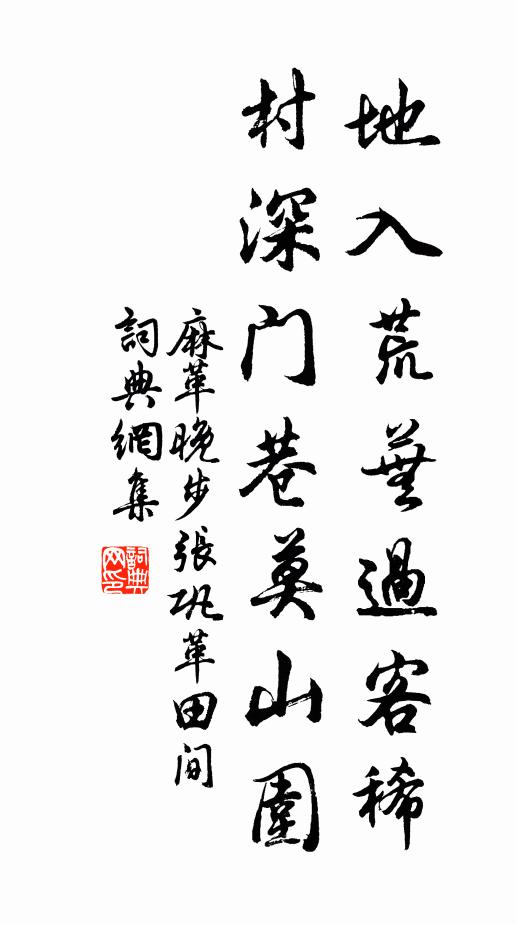 地入荒蕪過客稀
村深門巷莫山圍
麻革晚步張巩革田間
詞典網集
詞典网印